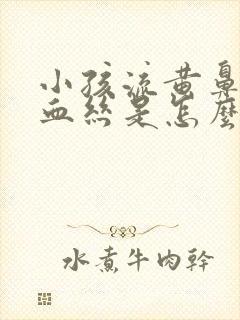 小孩流黄鼻
血絲是怎麼
水煮牛肉幹